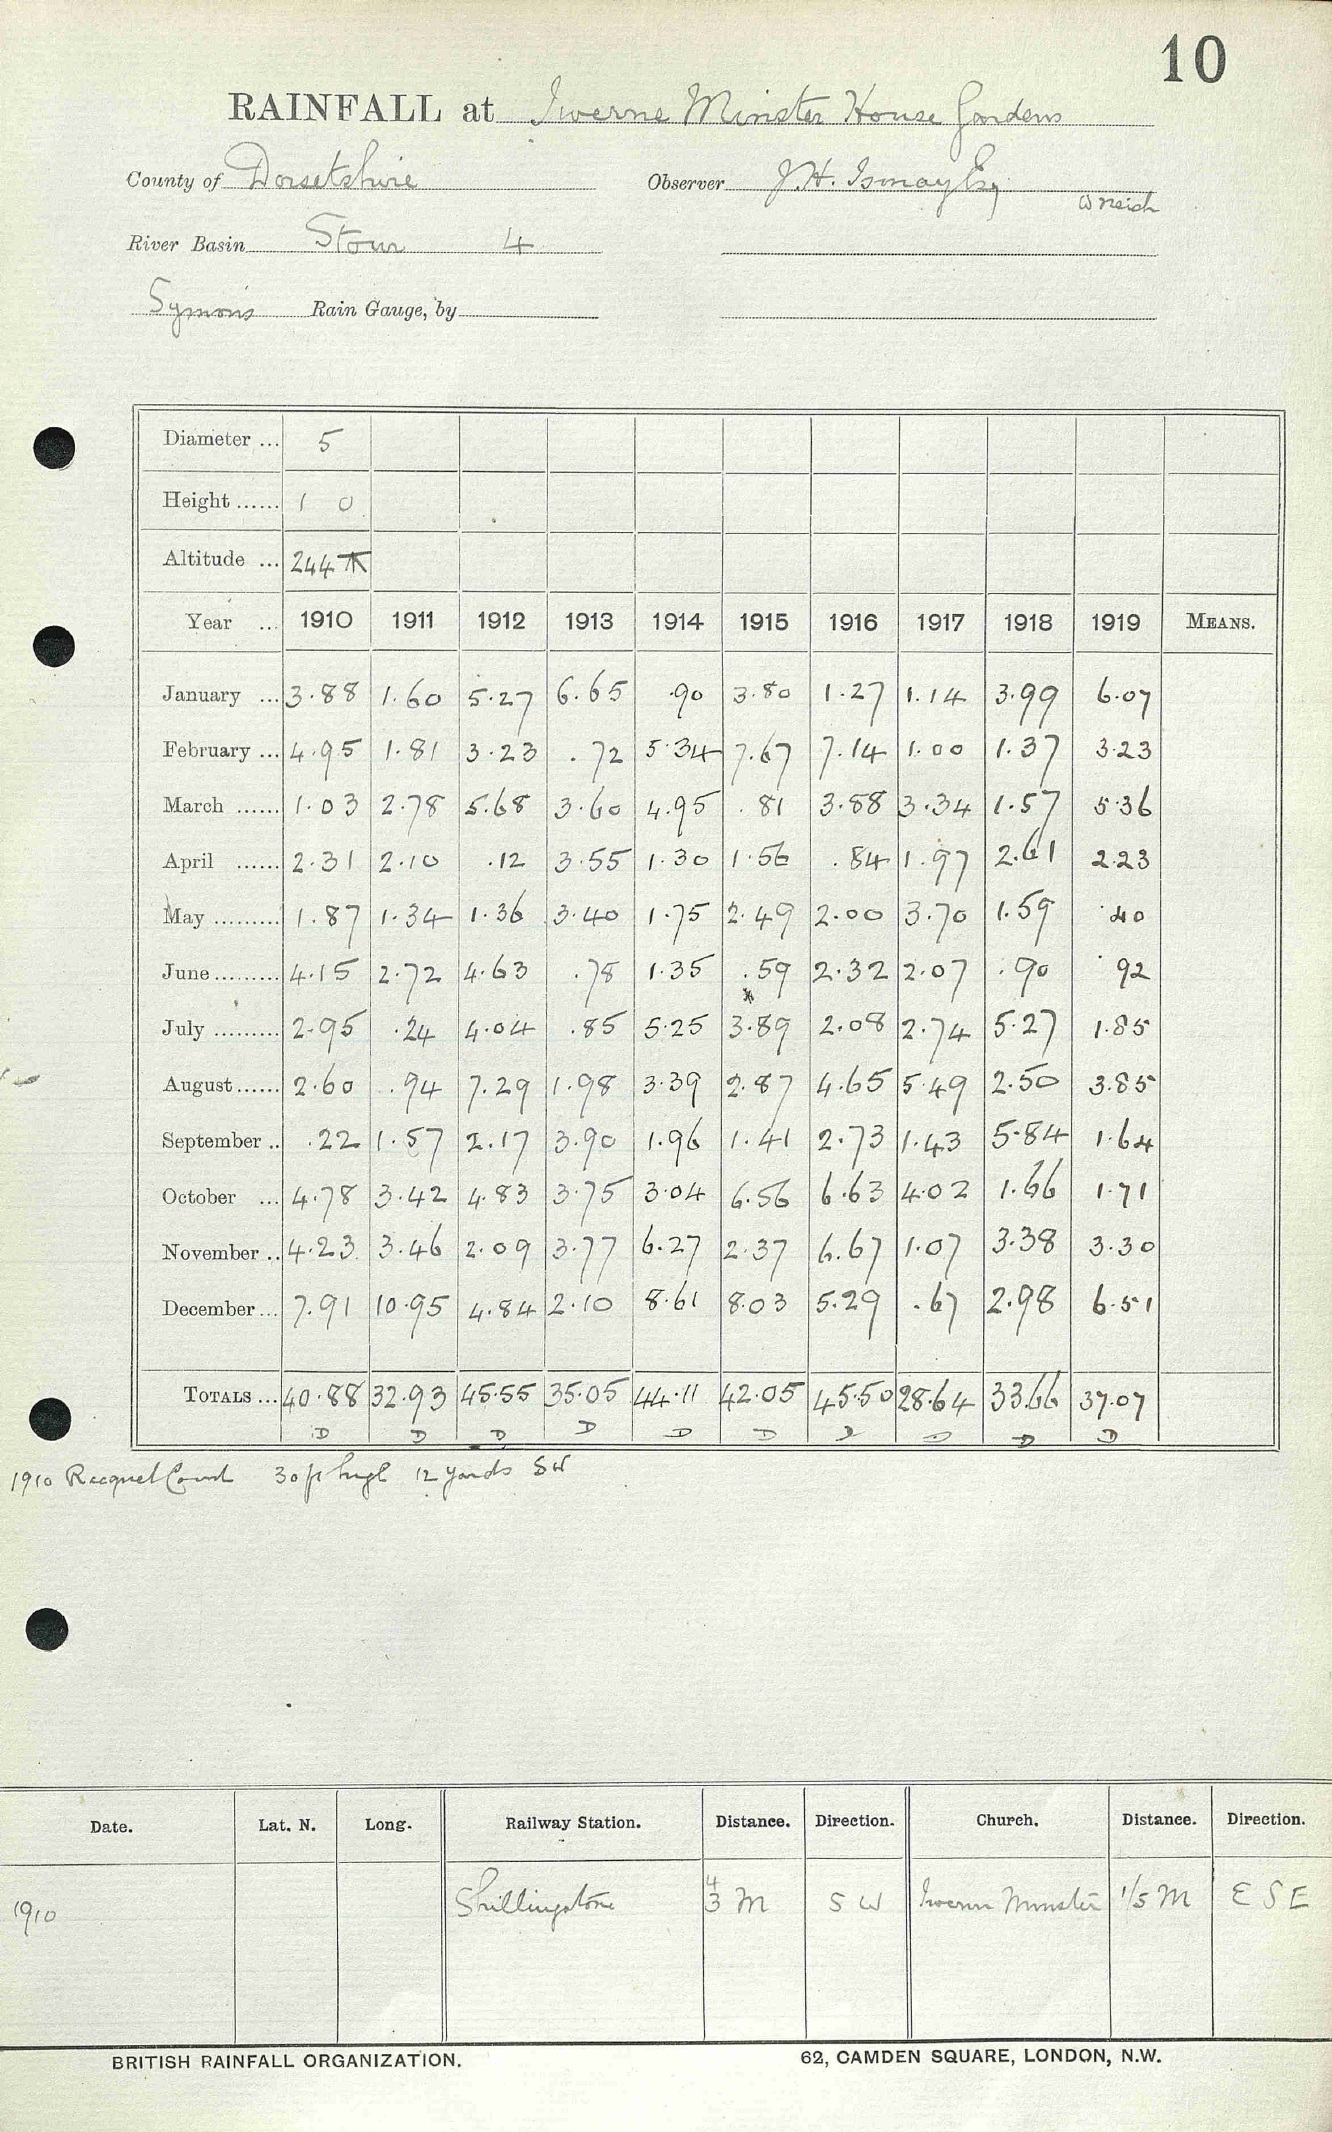 10
RAINFALL at Iwerne Minster House Gardens
County of Dorsetshire Observer J.H. Ismay Esq
River Basin Stour 4
Symons Rain Gauge, by
Diameter ... 5
Height ...... 1 0
Altitude ... 244
Year ... 1910 1911 1912 1913 1914 1915 1916 1917 1918 1919 MEANS.
January ... 3.88 1.60 5.27 6.65 .90 3.80 1.27 1.14 3.99 6.07
February ... 4.95 1.81 3.23 .72 5.34 7.67 7.14 1.00 1.37 3.23
March ...... 1.03 2.78 5.68 3.60 4.95 .81 3.88 3.34 1.57 5.36
April ...... 2.31 2.10 .12 3.55 1.30 1.56 .84 1.97 2.61 2.23
May ......... 1.87 1.34 1.36 3.40 1.75 2.49 2.00 3.70 1.59 .40
June ......... 4.15 2.72 4.63 .78 1.35 .59 2.32 2.07 .90 .92
July ......... 2.95 .24 4.04 .85 5.25 3.89 2.08 2.74 5.27 1.85
August ...... 2.60 .94 7.29 1.98 3.39 2.87 4.65 5.49 2.50 3.85
September .. .22 1.57 2.17 3.90 1.96 1.41 2.73 1.43 5.84 1.64
October ... 4.78 3.42 4.83 3.75 3.04 6.56 6.63 4.02 1.66 1.71
November .. 4.23 3.46 2.09 3.77 6.27 2.37 6.67 1.07 3.38 3.30
December ... 7.91 10.95 4.84 2.10 8.61 8.03 5.29 .67 2.98 6.51
TOTALS ... 40.88 32.93 45.55 35.05 44.11 42.05 45.50 28.64 33.66 37.07
D D D D D D D D D D
1910 Racquet Court 30 ft high 12 yards SW
Date. Lat. N. Long. Railway Station. Distance. Direction. Church. Distance. Direction.
1910 Shillingstone M SW Iwerne Minster 1/5 M ESE
BRITISH RAINFALL ORGANIZATION. 62, CAMDEN SQUARE, LONDON, N.W.